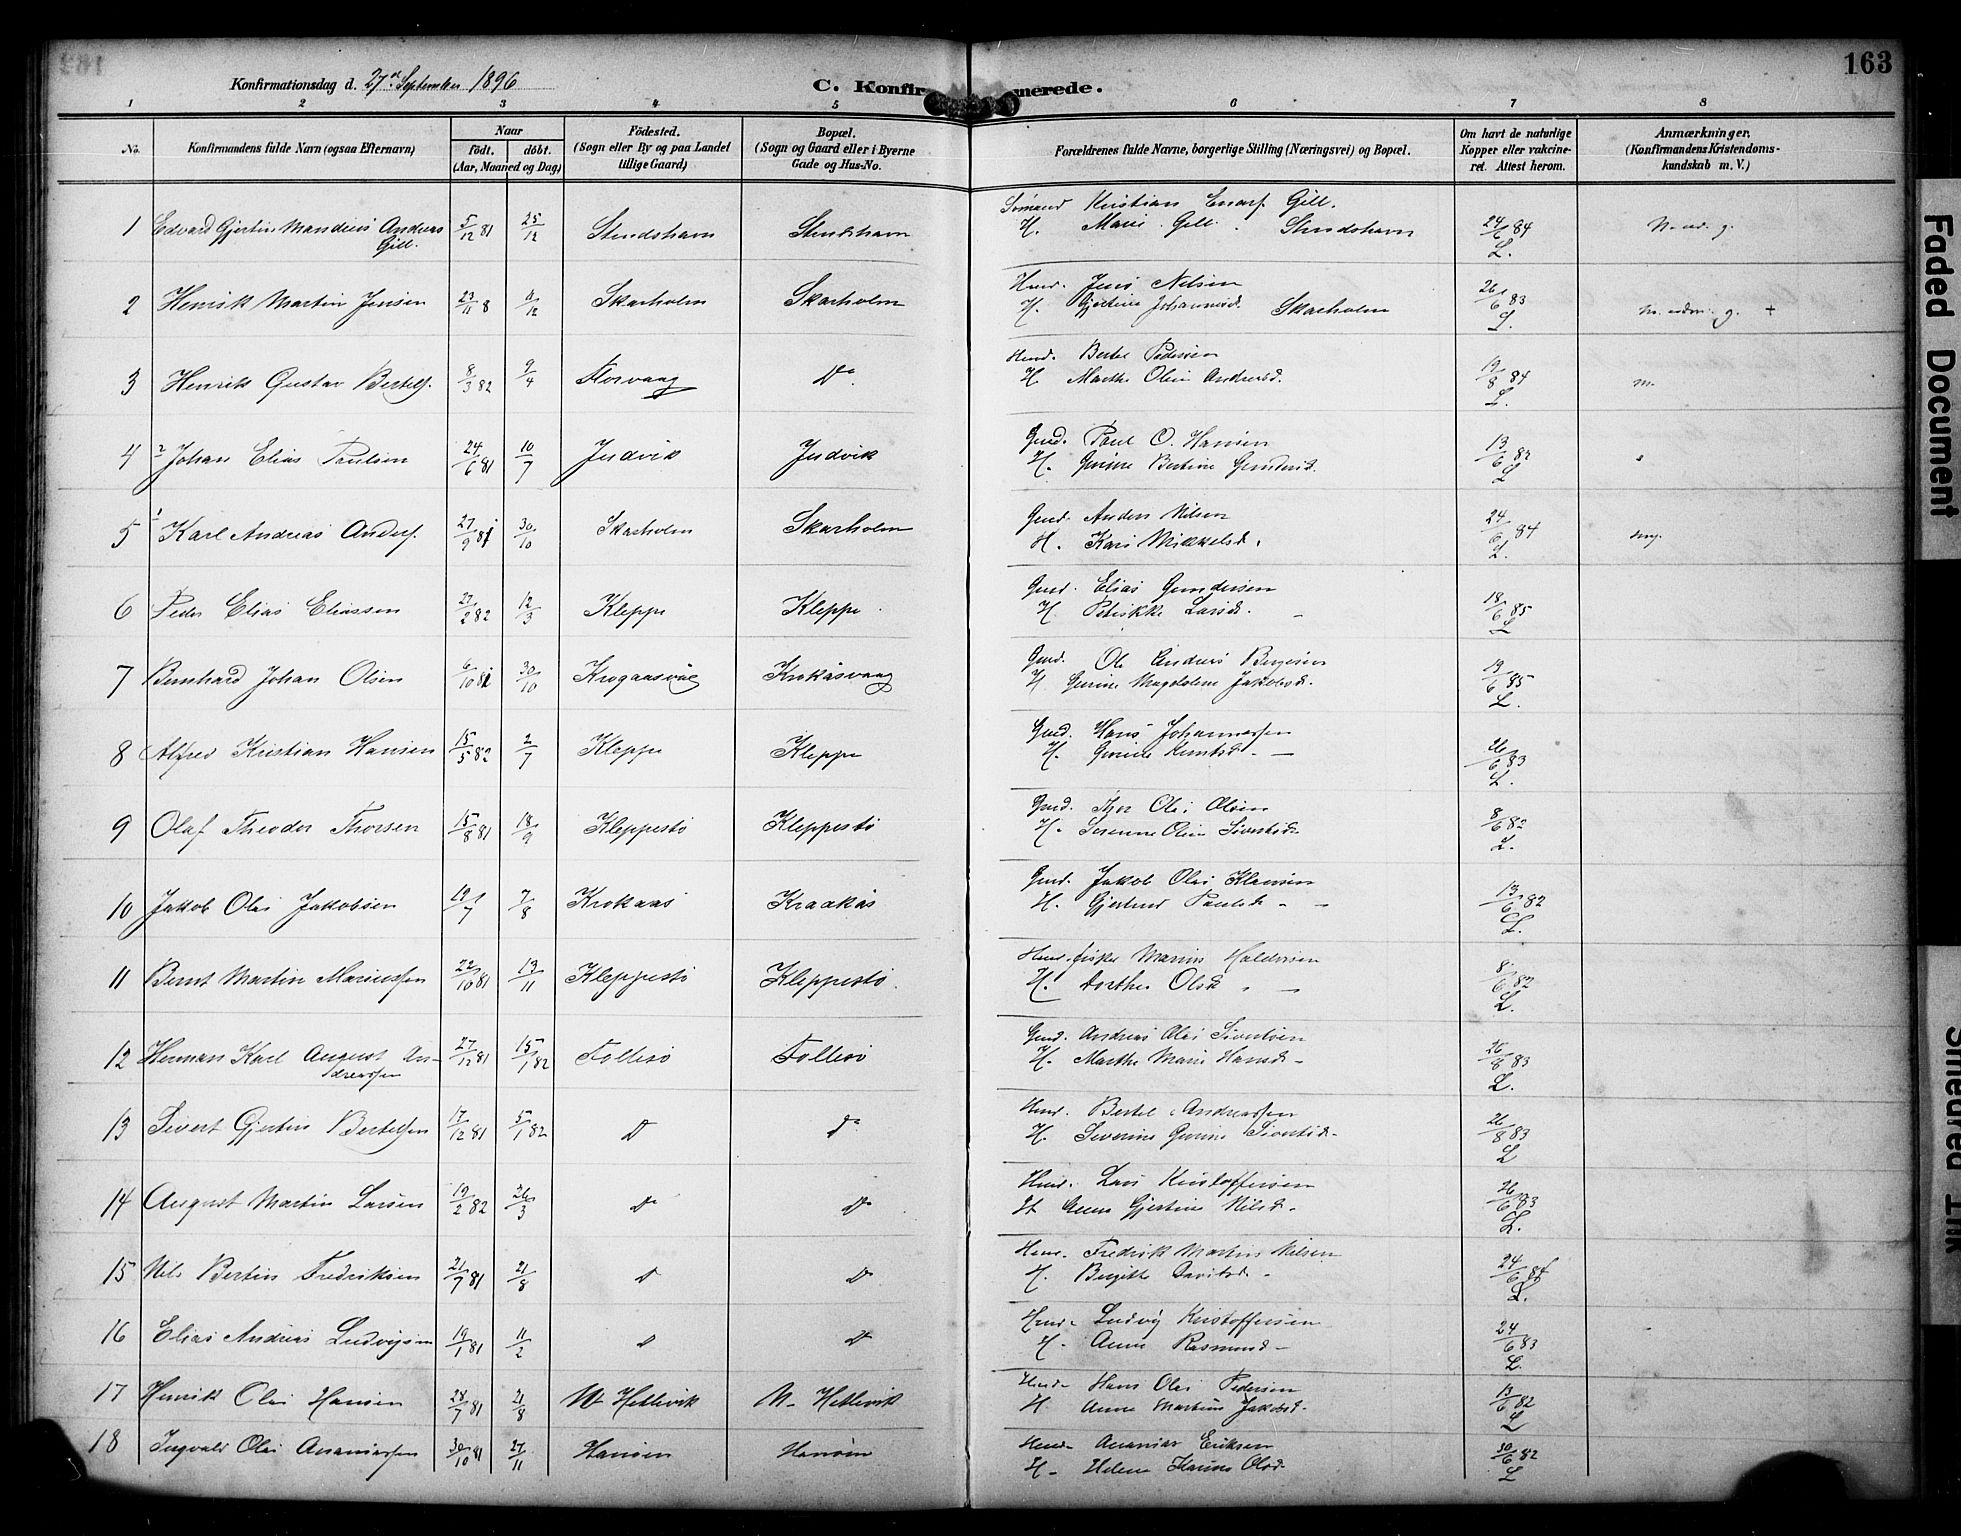 163
Konfirmationsdag d. 27de September 1896
C. Konfirmerede.
1 2 3 4 5 6 7 8
No. Konfirmandens fulde Navn (ogsaa Efternavn)
Naar
födt. döbt.
(Aar, Maaned og Dag)
Födested.
(Sogn eller By og paa Landet
tillige Gaard)
Bopæl.
(Sogn og Gaard eller i Byerne
Gade og Hus-No.
Forældrenes fulde Navne, borgerlige Stilling (Næringsvei) og Bopæl.
Om havt de naturlige
Kopper eller vakcine-
ret. Attest herom.
Anmærkninger.
(Konfirmandens Kristendoms-
kundskab m. V.)
1 Edvard Gjertin Mandius Andreas Gill. 5/12 81 25/12 Stendshavn Stendshavn
Kristian Gill.
H. Marie Gill. Stendshavn 24/6 84 L.
2 Henrik Martin Jensen 23/11 8 4/12 Skarholm Skarholm
Hmd. Jens Nilsen
H. Gjertine Johannesd. Skarholm 26/6 83 L.
3 Henrik Gustav Bertels. 8/3 82 9/4 Florvaag Do
Hmd. Bertel Pedersen
H. Marthe Oline Andersd. 19/8 84 L. m.
4 Johan Elias Paulsen 24/6 81 10/7 Judvik Judvik
Gmd. Paul O. Hansen
H. Gurine Bertine Gundersd. 13/6 82 L
5 Karl Andreas Anders. 27/9 81 30/10 Skarholm Skarholm
Gmd. Anders Nilsen
H. Kari Mikkelsd. 24/6 84 L. mg.
6 Peder Elias Eliassen 27/2 82 12/3 Kleppe Kleppe
Gmd. Elias Gundersen
H. Larsd. 18/6 85 L
7 Bernhard Johan Olsen 6/10 81 30/10 Krogaasvåg Krokåsvaag
Gmd. Ole Andreas Bergesen
H. Gurine Magdalene Jakobsd. 19/6 85 L.
8 Alfred Kristian Hansen 15/5 82 2/7 Kleppe Kleppe
Gmd. Hans Johannessen
H. Gurine Knutsd. 26/6 83 L.
9 Olaf Theodor Thorsen 15/8 81 18/9 Kleppestö Kleppestö
Gmd. Thor Olai Olsen
H. Serenne Oline Sivertsd. 8/6 82 L.
10 Jakob Olai Jakobsen 19/7 7/8 Krokaas Kraakås
Gmd. Jakob Olai Klausen
H. Gjertrud Paulsd. 13/6 82 L.
11 Bernt Martin Mariussen 22/10 81 13/11 Kleppestö Kleppestö.
Hmd. fisker Marius Haldorsen
H. Dorthea Olsd. 8/6 82 L
12 Herman Karl August An-
dreassen 27/12 81 15/1 82 Follesö Follesö
Gmd. Andreas Olai Sivertsen
H. Marthe Marie Hansd. 26/8 83 L.
13 Sivert Gjertin Bertelsen 17/12 81 5/1 82 Do Do
Hmd. Bertel Andreassen
H. Severine Gurine Sivertsd. 26/8 83 L
14 August Martin Larsen 19/2 82 26/3 Do Do
Hmd. Lars Kristoffersen
H. Anna Gjertine Nilsd. 26/6 83 L.
15 Nils Bertin Fredriksen 21/7 81 21/8 Do Do
Hmd. Fredrik Martin Nilsen
H. Birgitte Davidsd. 24/6 84 L.
16 Elias Andreas Ludvigsen 19/1 81 11/2 Do Do
Hmd. Ludvig Kristoffersen
H. Anna Rasmusd. 24/6 83 L.
17 Henrik Olai Hansen 28/7 81 21/8 N. Hetlevik N. Hetlevik
Hmd. Hans Olai Pedersen
H. Anne Martine Jakobsd. 13/6 82 L
18 Ingvald Olai Ananiassen 30/10 81 27/11 Hanöen Hanöen
Hmd. Ananias Eriksen
H. Helene Karine Olsd. 30/6 82 L
Faded Document
Smeared Ink